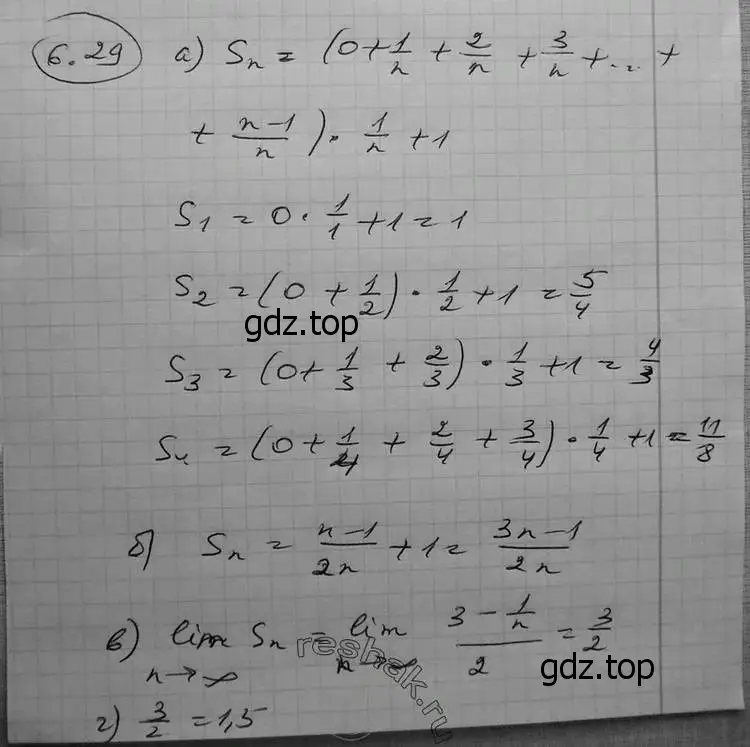 6.29 а) Sₙ = (0 + 1/n + 2/n + 3/n + ... +
+ (n-1)/n) · 1/n + 1
S₁ = 0 · 1/1 + 1 = 1
S₂ = (0 + 1/2) · 1/2 + 1 = 5/4
gdz.top
S₃ = (0 + 1/3 + 2/3) · 1/3 + 1 = 4/3
S₄ = (0 + 1/4 + 2/4 + 3/4) · 1/4 + 1 = 11/8
б) Sₙ = (n-1)/2n + 1 = (3n-1)/2n
в) lim Sₙ = lim (3 - 1/n)/2 = 3/2
n→∞ n→∞
reshak.ru
gdz.top
г) 3/2 = 1,5